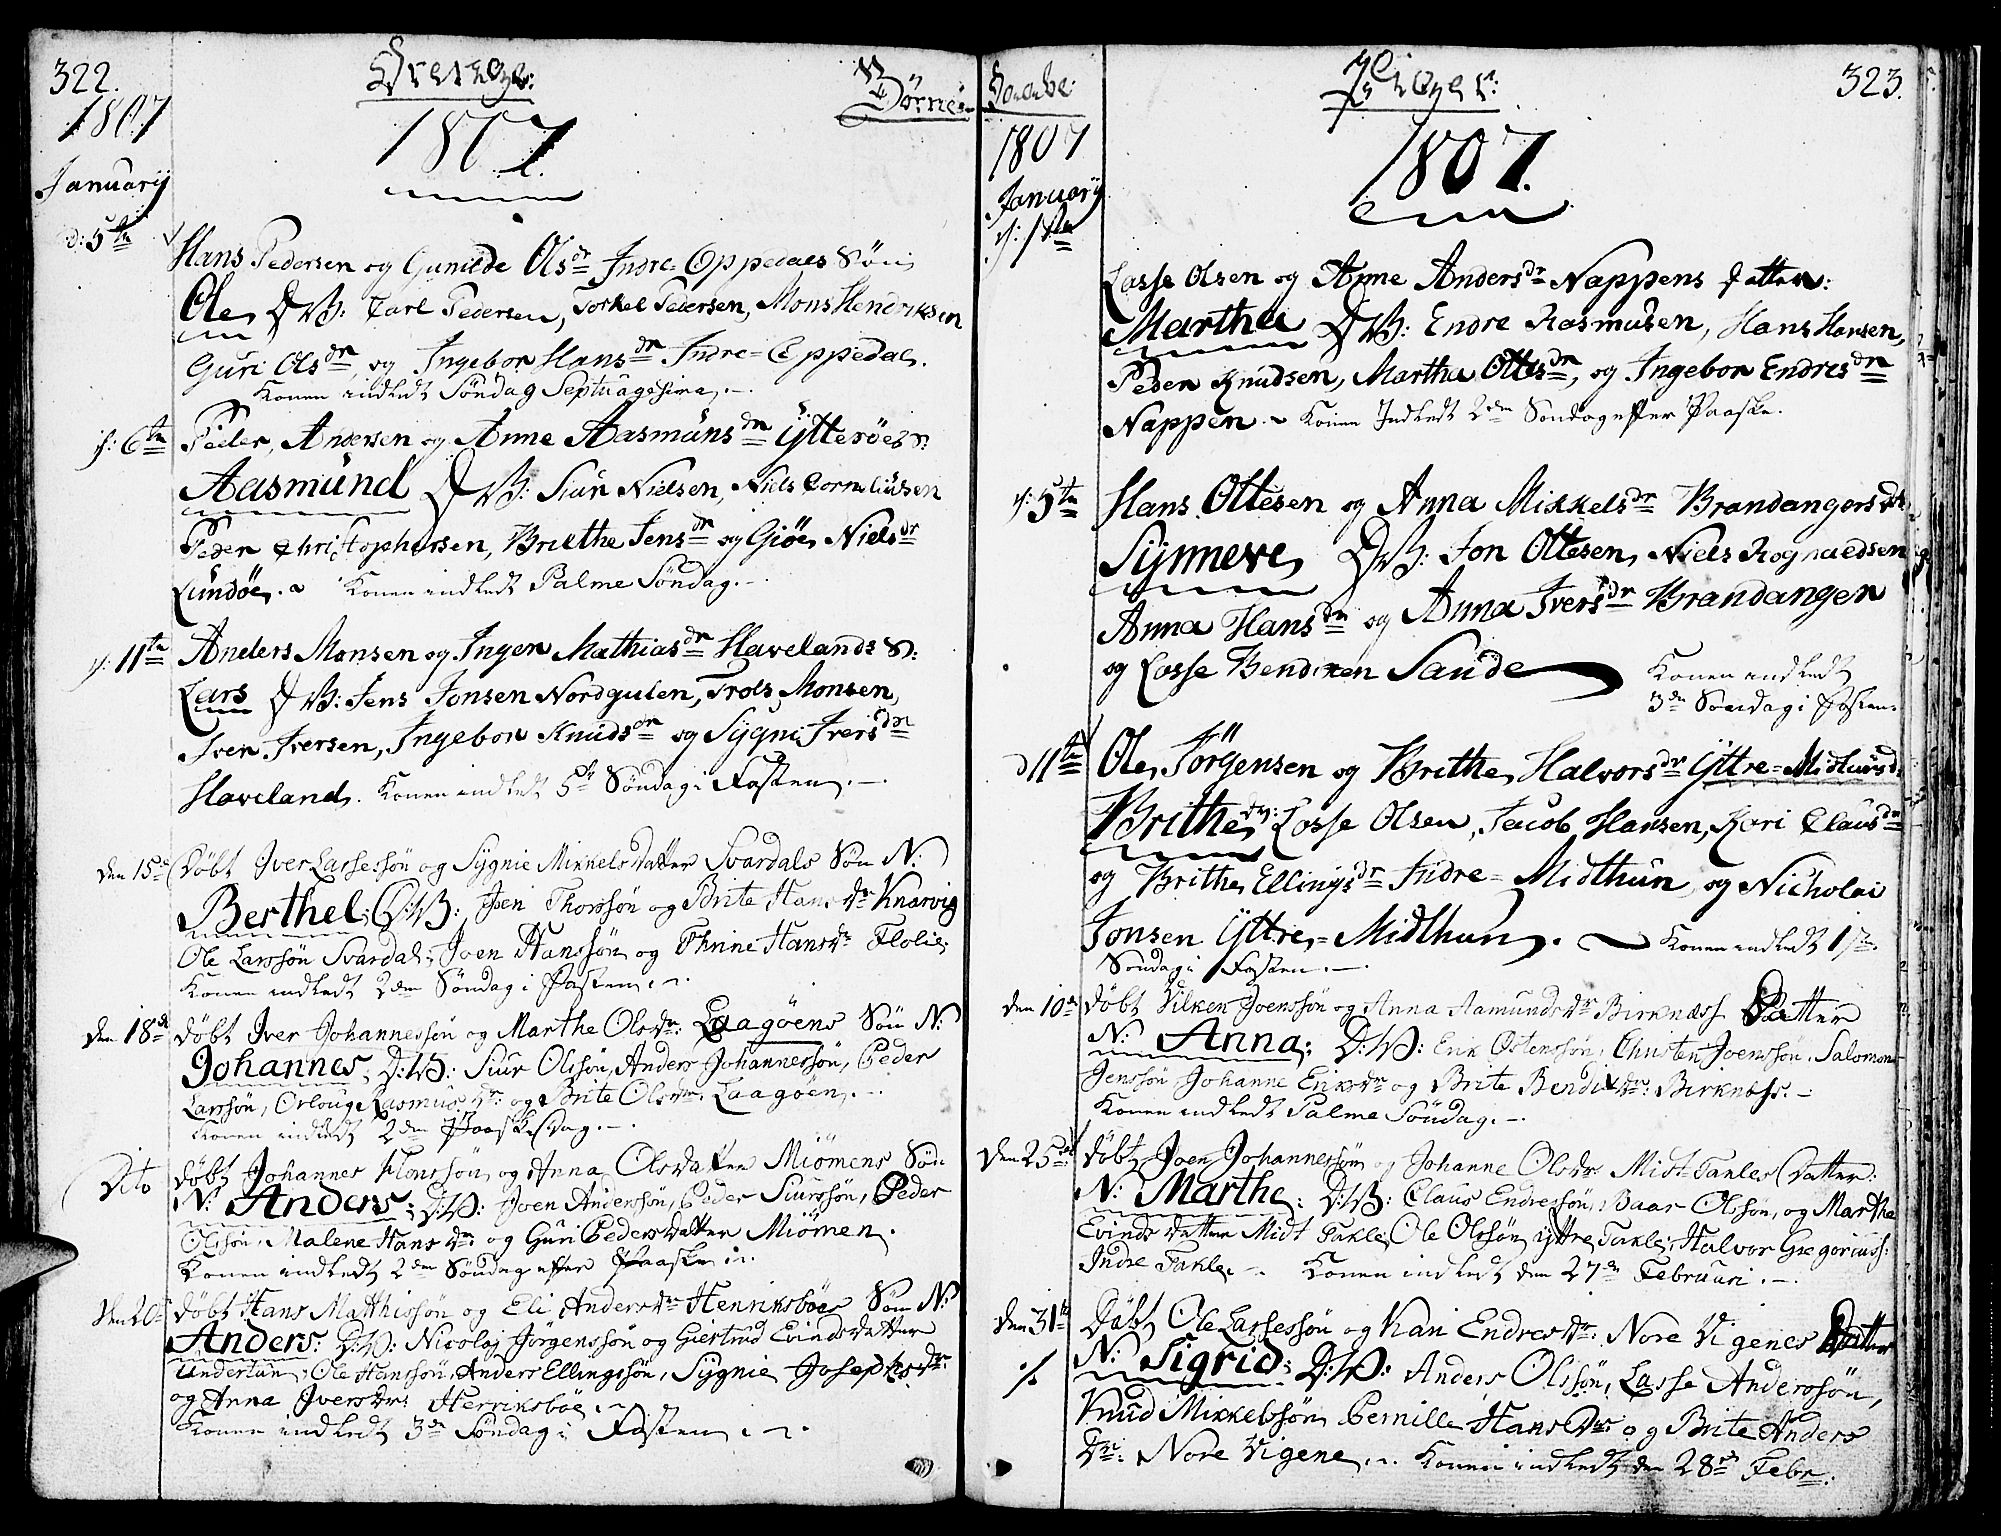 322.
Drenge:
Börne=
1807
1807
January
d: 5te
Hans Pedersen og Gunilde Olsdr Indre-Oppedals Søn
Ole, DW: Carl Pedersen, Torkel Pedersen, Mons Hendriksen
Guri Olsdr, og Ingebor Hansdr Indre-Oppedal.
Konen indledt Söndag Septuagesima.
d: 6te Peder Andersen og Anne Aasmunsdr Ytteröes S:
Aasmund DW: Siur Nielsen, Niels Corneliusen
Peder Christophersen, Brithe Jensdr og Giöe Nielsdr
Lundöe. Konen indledt Palme Söndag.
d: 11te Anders Monsen og Inger Mathiasdr Havelands S:
Lars DW: Jens Jonsen Nordgulen, Trols Monsen,
Iver Iversen, Ingebor Knudsdr og Sygni Iversdr
Haveland. Konen indledt 5te Söndag i Fasten.
den 15de Döbt Iver Lassessön og Sygnie Mikkelsdatter Svardals Sön N:
Berthel; D:W: Joen Thorssön og Brite Hansdr Knarvig
Ole Larssön Svardal; Joen Hanssön og Thrine Hansdr Flolie;
Konen indledt 2den Söndag i Fasten.
den 18de döbt Iver Johannessön og Marthe Olsdr: Laagöens Sön N:
Johannes; D:W: Siur Olssön, Anders Johannessön, Peder
Larssön, Orlouge Rasmusdr: og Brite Olsdr: Laagöen.
Konen indledt 2den Paaskedag.
Dito döbt Johannes Monssön og Anna Olsdatter Miömens Sön
N: Anders; D:W: Joen Anderssön, Peder Siurssön, Peder
Olssön, Malene Hansdr: og Guri Pedersdatter Miömen.
Konen indledt 2den Söndag efter Paaske.
den 20de döbt Hans Matthissön og Eli Andersdr Henriksböes Sön N:
Anders: D:W: Nicolaj Jörgenssön og Giertrud Evindsdatter
Undertun; Ole Hanssön, Anders Ellingssön, Sygnie Josephsdr:
og Anna Iversdr: Henriksböe.
Konen indledt 3de Söndag i Fasten.
Daabe:
Piger:
323.
1807
1807.
January
d: 1te
Lasse Olsen og Anne Andersdr Nappens Datter:
Martha DW: Endre Rasmusen, Hans Hansen,
Peder Knudsen, Martha Ottesdr, og Ingebor Endresdr
Nappen. Konen Indledt 2den Söndag efter Paaske.
d: 5te Hans Ottesen og Anna Mikkelsdr Brandangers dr
Synneve, DW: Jon Ottesen, Niels Rognaldsen
Anna Hansdr og Anna Iversdr Brandanger
og Lasse Bendixen Sande Konen indledt
3de Söndag i Fasten.
d 11te Ole Jörgensen og Brithe Halvorsdr Yttre=Midhuns d.
Brithe, DW: Lasse Olsen, Jacob Hansen, Kari Clausdr
og Brithe Ellingsdr Indre-Midthun og Nicholai
Jonsen Yttre=Midthun. Konen indledt 1ste
Söndag i Fasten.
den 10de döbt Vilken Joenssön og Anna Aamundsdr Birknæss Datter
N: Anna; D:W: Erik Östenssön, Christen Joenssön, Salomon
Jenssön, Johanne Eriksdr og Brite Bendixdr: Birknæss.
Konen indledt Palme Söndag.
den 25de döbt Joen Johannessön og Johanne Olsdr Midt-Takles Datter:
N: Marthe: D:W: Claus Endressön, Baar Olssön, og Marthe
Evindsdatter Midt Takle, Ole Olssön yttre Takle, Halvor Gregoriuss:
Indre Takle. Konen indledt den 27de Februari.
den 31te Döbt Ole Lassessön og Kari Endresdr: Nore Vigenes Datter
N: Sigrid; D:W: Anders Olssön, Lasse Anderssön,
Knud Mikkelssön, Pernille Hansdr og Brite Anders
Dr: Nore Vigene. Konen indledt den 28de Febr: